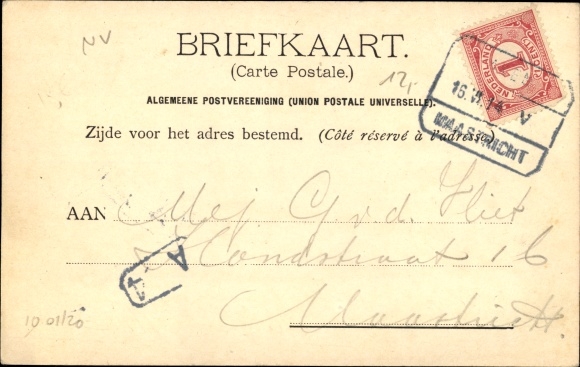 NV
BRIEFKAART.
(Carte Postale.)
12,-
ALGEMEENE POSTVEREENIGING (UNION POSTALE UNIVERSELLE).
Zijde voor het adres bestemd. (Côté réservé à l'adresse)
NEDERLAND
1
CENT
16.VI.14 V
MAASTRICHT
AAN Mej G. v.d. Vliet
Hondstraat 16
Maastricht.
A
4
10 01/20